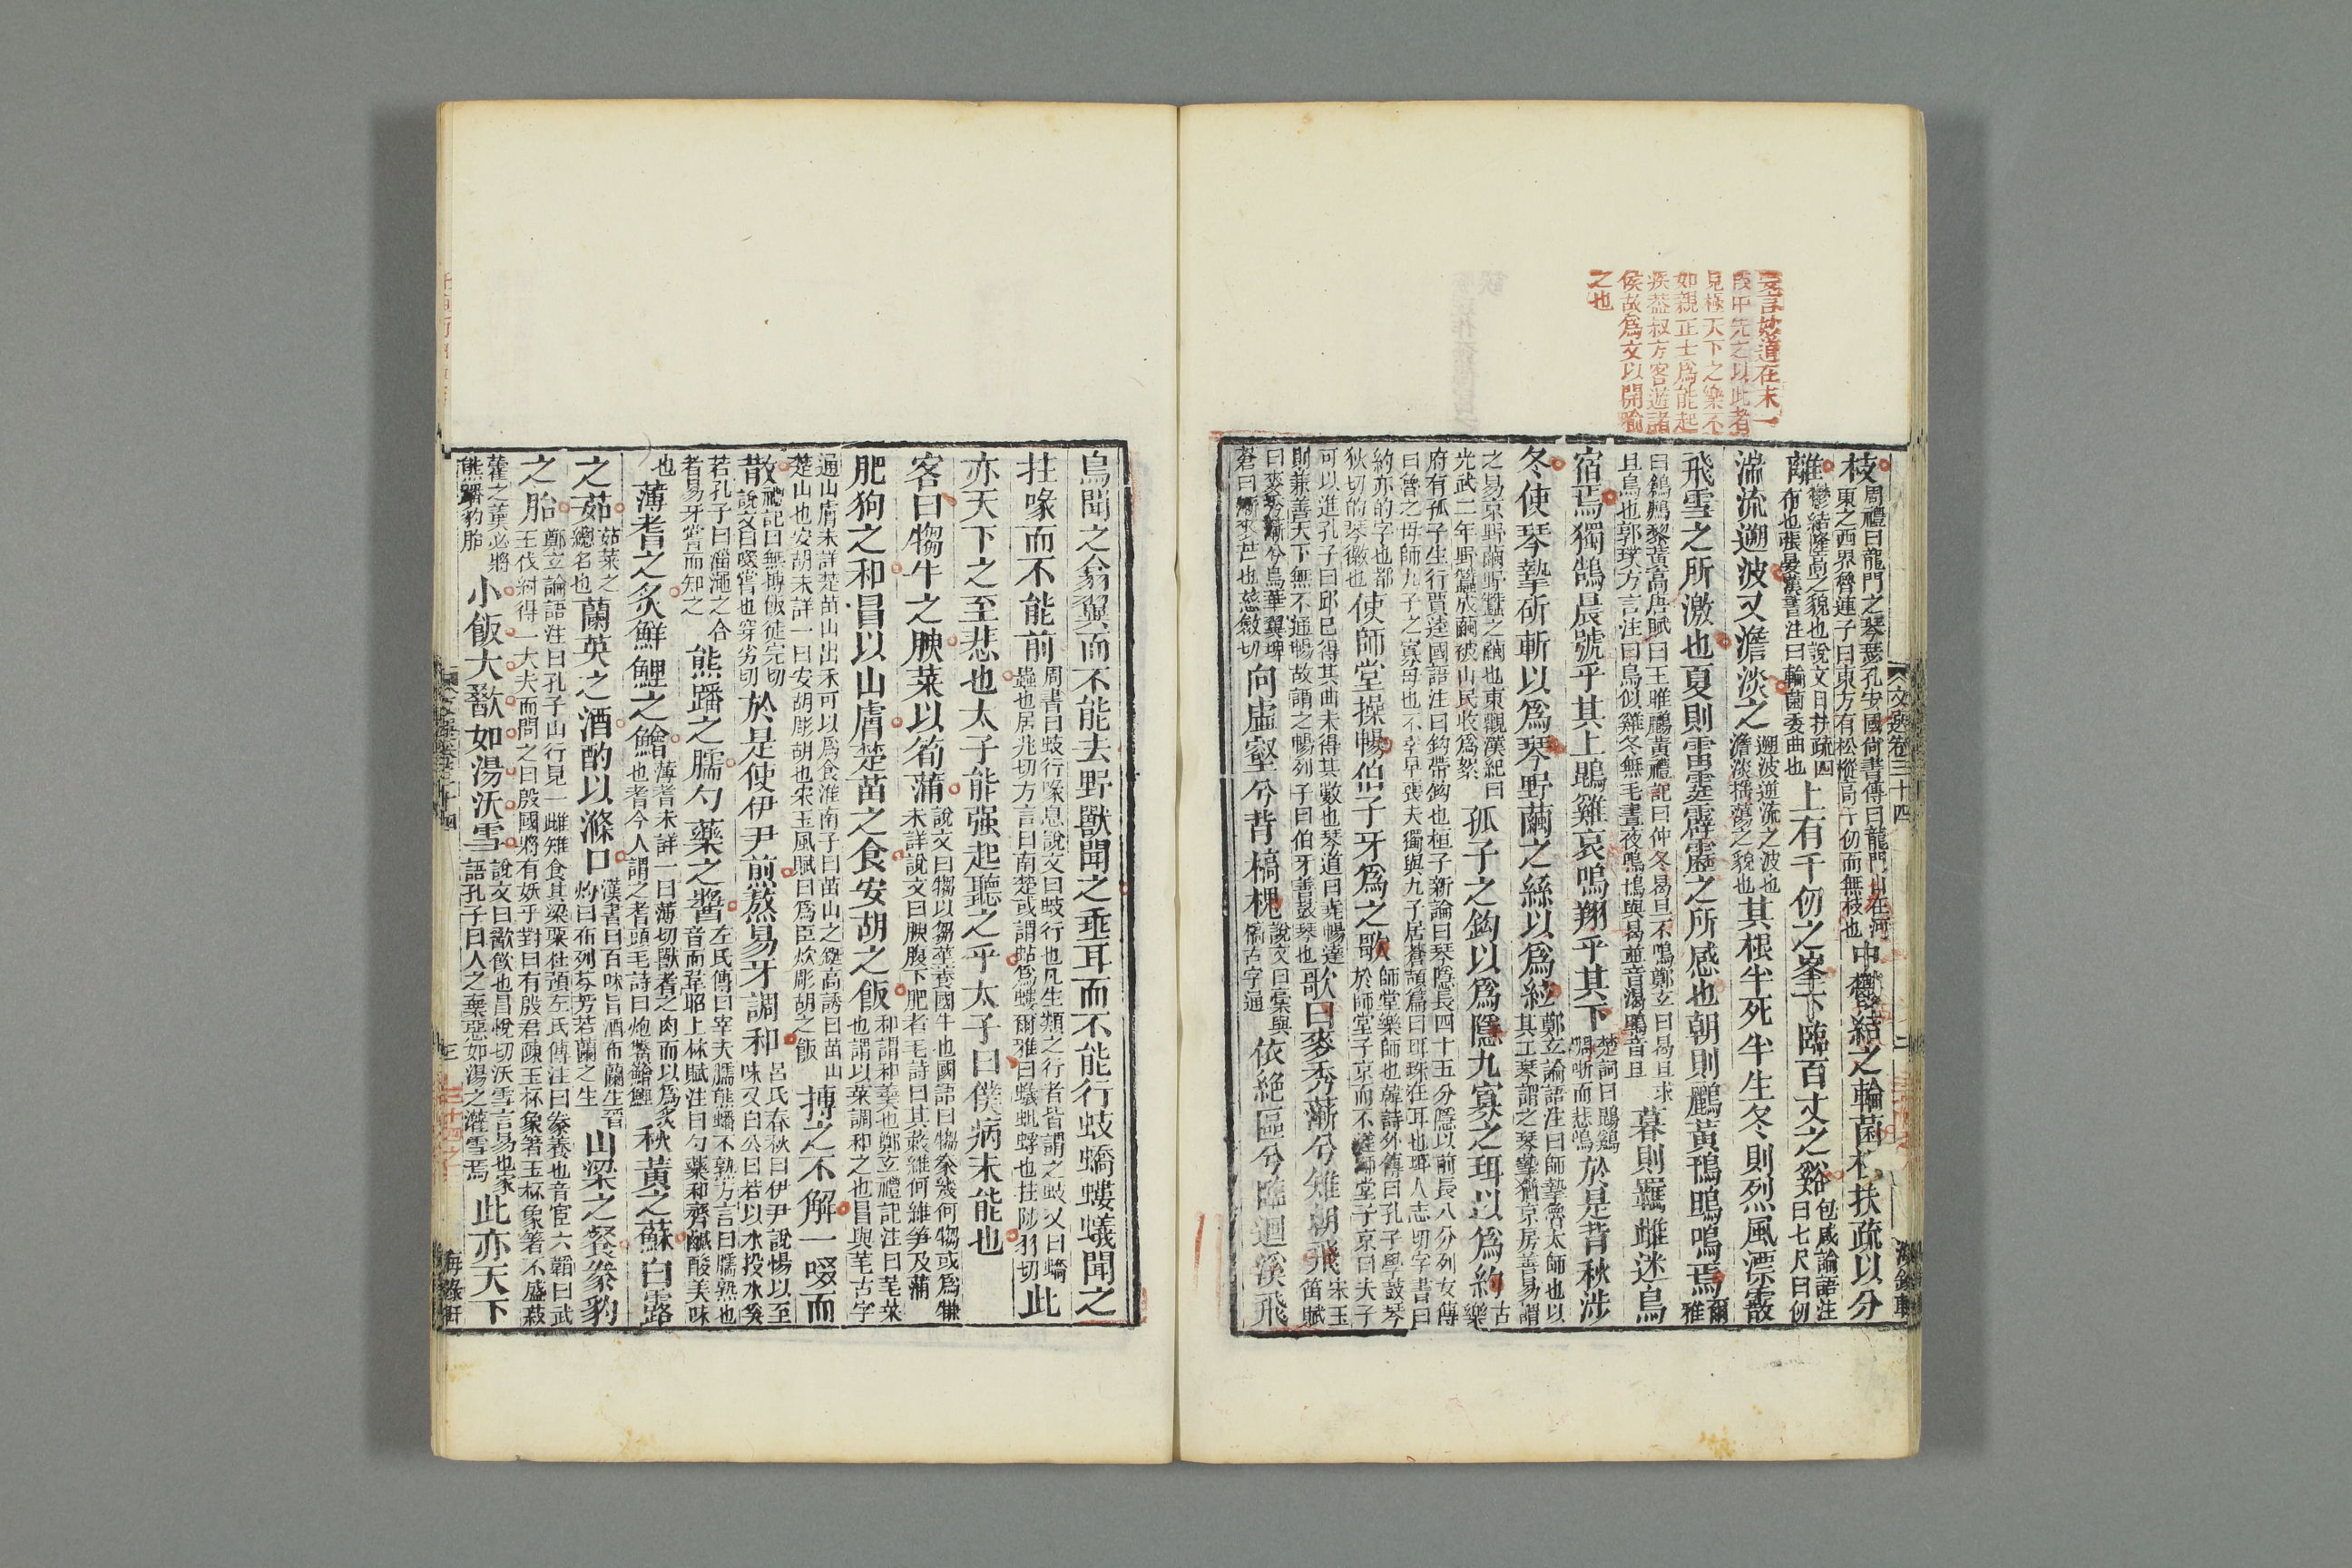 要言妙道在末一
段中先之以此者
見極天下之樂不
如親正士爲能起
疾葢叔方客遊諸
侯故爲文以開喻
之也
文選卷三十四
二
海錄軒
枝
周禮曰龍門之琴瑟孔安國尙書傳曰龍門山在河
東之西界魯連子曰東方有松樅高千仞而無枝也
中鬱結之輪菌根扶疏以分
離
鬱結隆高之貌也說文曰扶疏四
布也張晏漢書注曰輪菌委曲也
上有千仞之峯下臨百丈之谿
包咸論語注
曰七尺曰仞
湍流遡波又澹淡之
遡波逆流之波也
澹淡揺蕩之貌也
其根半死半生冬則烈風漂霰
飛雪之所激也夏則雷霆霹靂之所感也朝則鸝黃鳱鴠鳴焉
爾
雅
曰鶬鶊黎黃高唐賦曰王雎鸝黃禮記曰仲冬曷旦不鳴鄭玄曰曷旦求
旦鳥也郭璞方言注曰鳥似雞冬無毛晝夜鳴鳱與曷並音渴鴠音旦
暮則羈雌迷鳥
宿焉獨鵠晨號乎其上鵾雞哀鳴翔乎其下
楚詞曰鵾雞
啁哳而悲鳴
於是背秋涉
冬使琴摯斫斬以爲琴野繭之絲以爲絃
鄭玄論語注曰師摯魯太師也以
其工琴謂之琴摯猶京房善易謂
之易京野繭野蠶之繭也東觀漢紀曰
光武二年野蠶成繭被山民收爲絮
孤子之鈎以爲隱九寡之珥以爲約
古
樂
府有孤子生行賈逵國語注曰鈎帶鈎也桓子新論曰琴隱長四十五分隱以前長八分列女傳
曰魯之母師九子之寡母也不幸早喪夫獨與九子居蒼頡篇曰珥珠在耳也珥人志切字書曰
約亦的字也都
狄切的琴徽也
使師堂操暢伯子牙爲之歌
師堂樂師也韓詩外傳曰孔子學鼓琴
於師堂子京而不進師堂子京曰夫子
可以進孔子曰邱已得其曲未得其數也琴道曰堯暢達
則兼善天下無不通暢故謂之暢列子曰伯牙善鼓琴也
歌曰麥秀蔪兮雉朝飛
宋玉
笛賦
曰麥秀蔪兮鳥華翼埤
蒼曰蔪麥芒也慈斂切
向虛壑兮背槁槐
說文曰槀與
槁古字通
依絶區兮臨迴溪飛
鳥聞之翕翼而不能去野獸聞之垂耳而不能行蚑蟜螻蟻聞之
拄喙而不能前
周書曰蚑行喙息說文曰蚑行也凡生類之行者皆謂之蚑又曰蟜
蟲也居兆切方言曰南楚或謂蛄爲螻爾雅曰蟻蚍蜉也拄陟羽切
此
亦天下之至悲也太子能强起聽之乎太子曰僕病未能也
客曰犓牛之腴菜以筍蒲
說文曰犓以芻莖養國牛也國語曰犓豢幾何犓或爲犓
未詳說文曰腴腹下肥者毛詩曰其蔌維何維筍及蒲
肥狗之和冒以山膚楚苗之食安胡之飯
和謂和羹也鄭玄禮記注曰芼菜
也謂以菜調和之也冒與芼古字
通山膚未詳楚苗山出禾可以爲食淮南子曰苗山之鋋高誘曰苗山
楚山也安胡未詳一曰安胡彫胡也宋玉風賦曰爲臣炊彫胡之飯
摶之不解一啜而
散
禮記曰無摶飯徒完切
說文曰啜嘗也穿劣切
於是使伊尹煎熬易牙調和
呂氏春秋曰伊尹說惕以至
味又白公曰若以水投水奚
若孔子曰淄澠之合
者易牙嘗而知之
熊蹯之臑勺藥之醬
左氏傳曰宰夫臑熊蹯不熟方言曰臑熟也
音而韋昭上林賦注曰勺藥和齊鹹酸美味
也
薄耆之炙鮮鯉之鱠
薄耆未詳一曰薄切獸耆之肉而以爲炙
也耆今人謂之耆頭毛詩曰炮鱉鱠鯉
秋黃之蘇白露
之茹
茹菜之
總名也
蘭英之酒酌以滌口
漢書曰百味旨酒布蘭生晉
灼曰布列芬芳若蘭之生
山梁之餐豢豹
之胎
鄭玄論語注曰孔子山行見一雌雉食其梁粟杜預左氏傳注曰豢養也音宦六韜曰武
王伐紂得一大夫而問之曰殷國將有妖乎對曰有殷君陳玉杯象箸玉杯象箸不盛菽
藿之羹必將
熊蹯豹胎
小飯大歠如湯沃雪
說文曰歠飲也昌悅切沃雪言易也家
語孔子曰人之棄惡如湯之灌雪焉
此亦天下
三
海錄軒